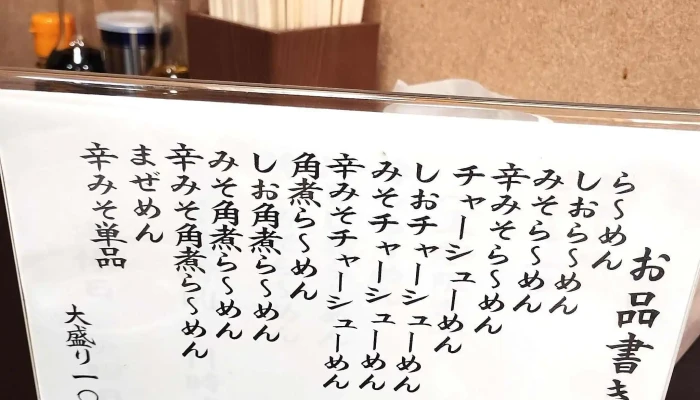 お品書き
ら〜めん
しおら〜めん
みそら〜めん
辛みそら〜めん
チャーシューめん
しおチャーシューめん
みそチャーシューめん
辛みそチャーシューめん
角煮ら〜めん
しお角煮ら〜めん
みそ角煮ら〜めん
辛みそ角煮ら〜めん
まぜめん
辛みそ単品
大盛り一〇